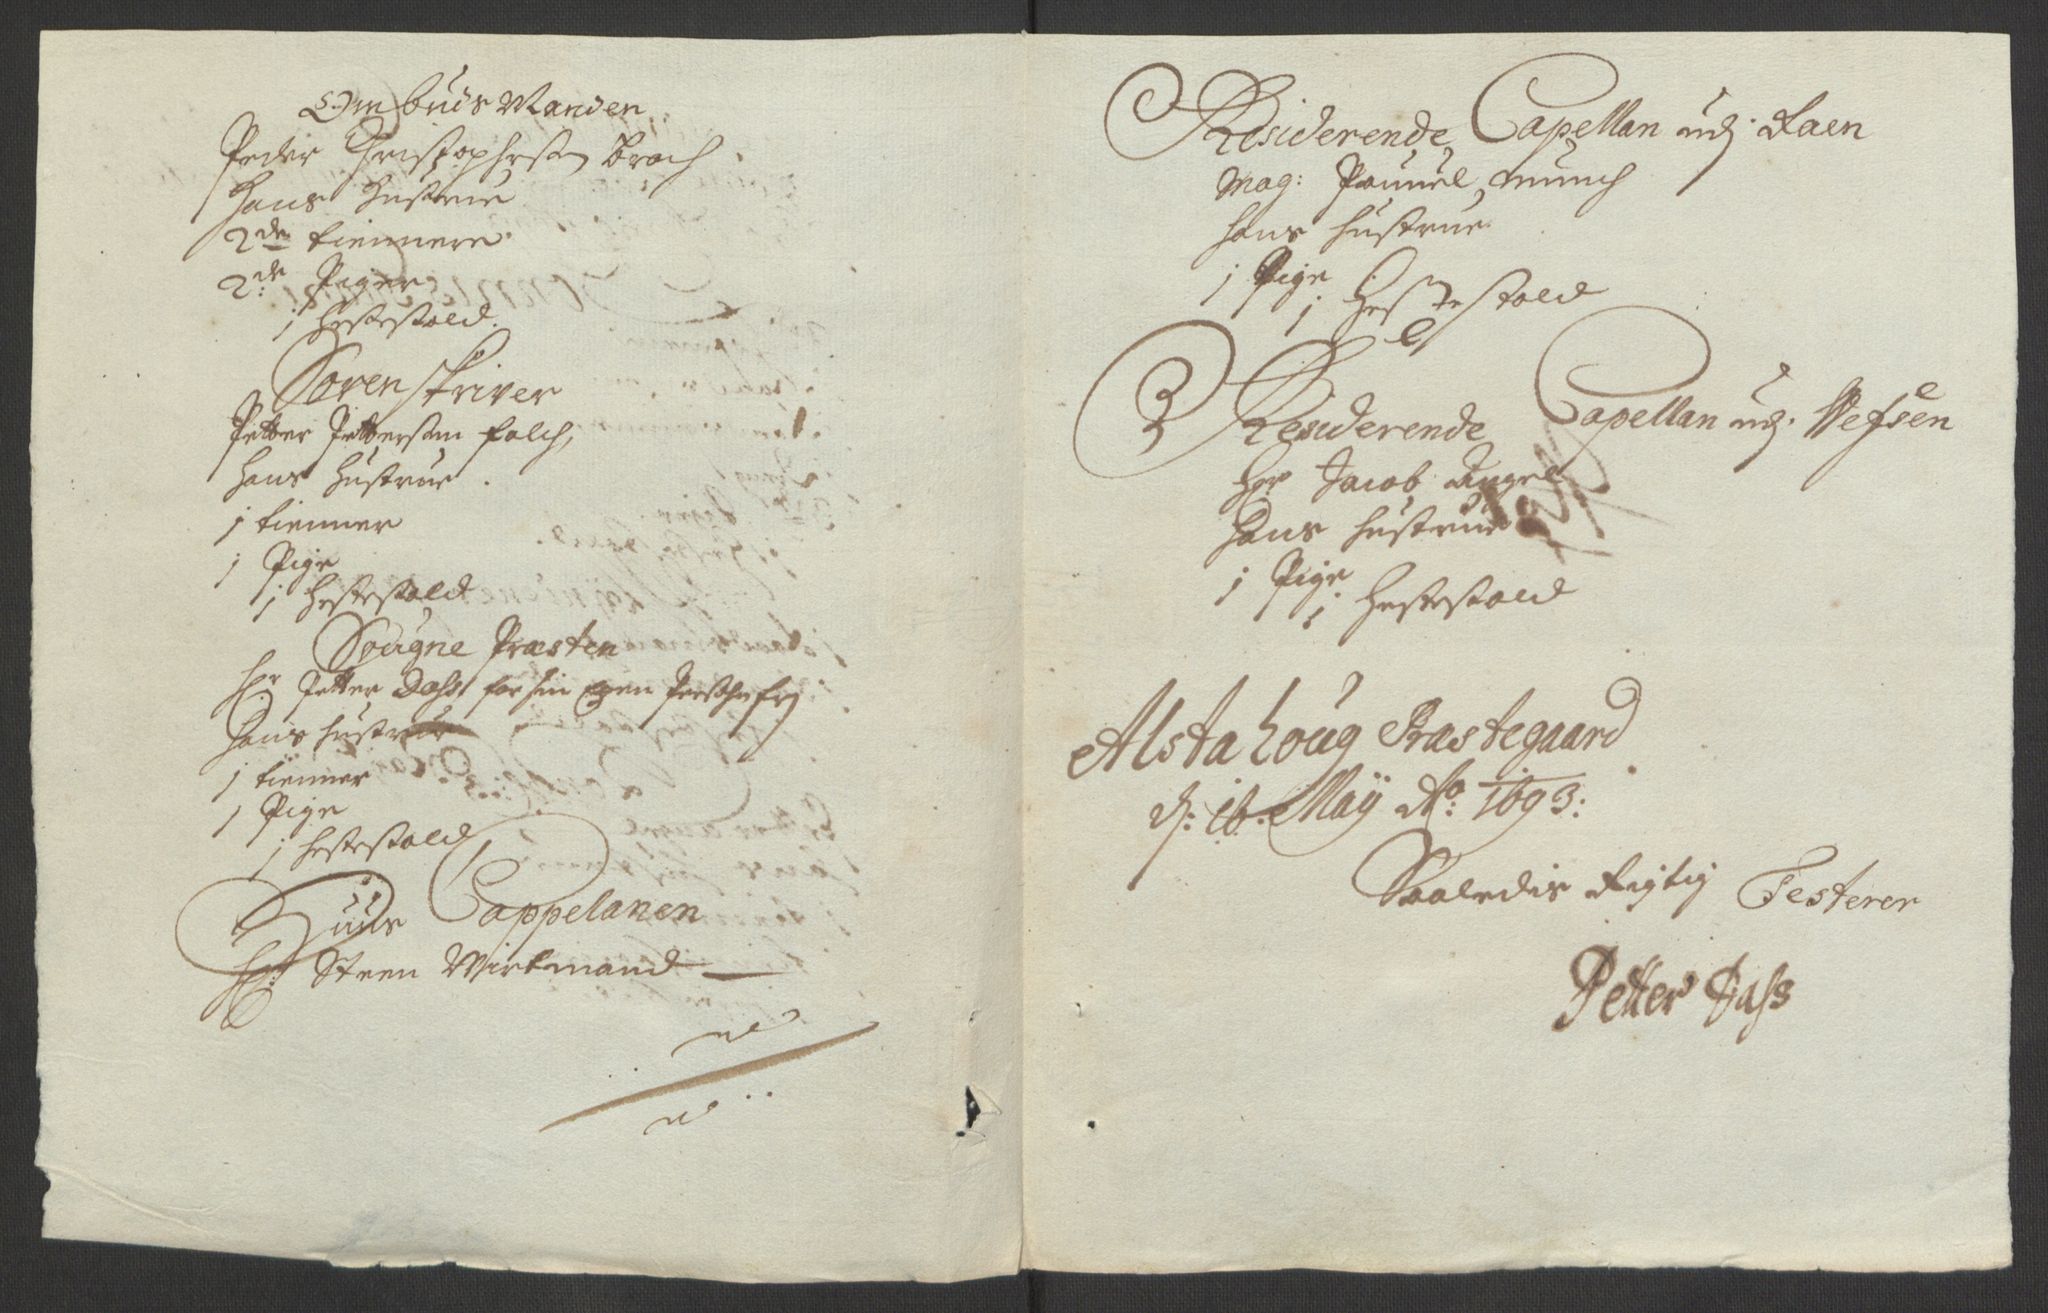 Ombuds Manden
Peder Christophersen Broch
Hans Hustrue
2de tiennere
2de Piger
1 Hestestald.
Soren skriver
Petter Pettersen falch,
Hans Hustrue.
1 tienner
1 Pige
1 Hestestald
Sougne Præsten
Hr Petter Dass for sin egen Persohn frj
Hans Hustrue
1 tienner
1 Pige
1 Hestestald
Huus Cappelanen
Hr: Steen Wirtmand
Residerende Capellan udj Raen
Mag: Pouuel Munch
Hans Hustrue
1 Pige
1 Hestestald
Residerende Capellan udj. Vefsen
Hr Jacob Angel
Hans Hustrue
1 Pige
1 Hestestald
Alstahoug Præstegaard
d: 16. Maÿ Ao: 1693:
Saaledis Rigtig Testerer
Petter Dass